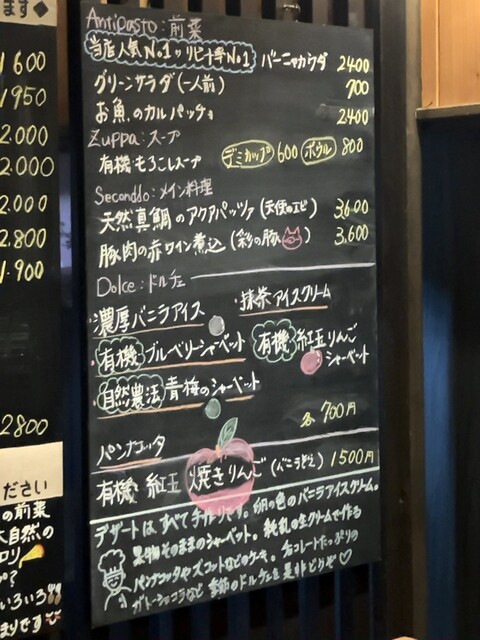 ます◆
1600
1950
2.000
2.000
2.000
2.800
1.900
2800
ださい
の前菜
大自然の
ロリ
プ?
いろいろ
まりです
Antipasto:前菜
当店人気No.1 リピート率No1 バーニャカウダ 2400
グリーンサラダ(一人前) 700
お魚のカルパッチョ 2400
Zuppa:スープ
有機・もろこしスープ デミカップ 600 ボウル 800
Secondo:メイン料理
天然真鯛のアクアパッツァ(天使のエビ) 3,600
豚肉の赤ワイン煮込(彩の豚) 3,600
Dolce:ドルチェ
・濃厚バニラアイス ・抹茶アイスクリーム
・有機ブルーベリーシャーベット 有機紅玉りんごシャーベット
・自然農法青梅のシャーベット
各700円
パンナコッタ
有機・紅玉 焼きりんご(バニラぞえ) 1500円
デザートはすべて手作りです。卵の色のバニラアイスクリーム。
果物そのままのシャーベット。純乳の生クリームで作る
パンナコッタやズコットなどのケーキ。チョコレートたっぷりの
ガトーショコラなど 季節のドルチェを是非どうぞ♡